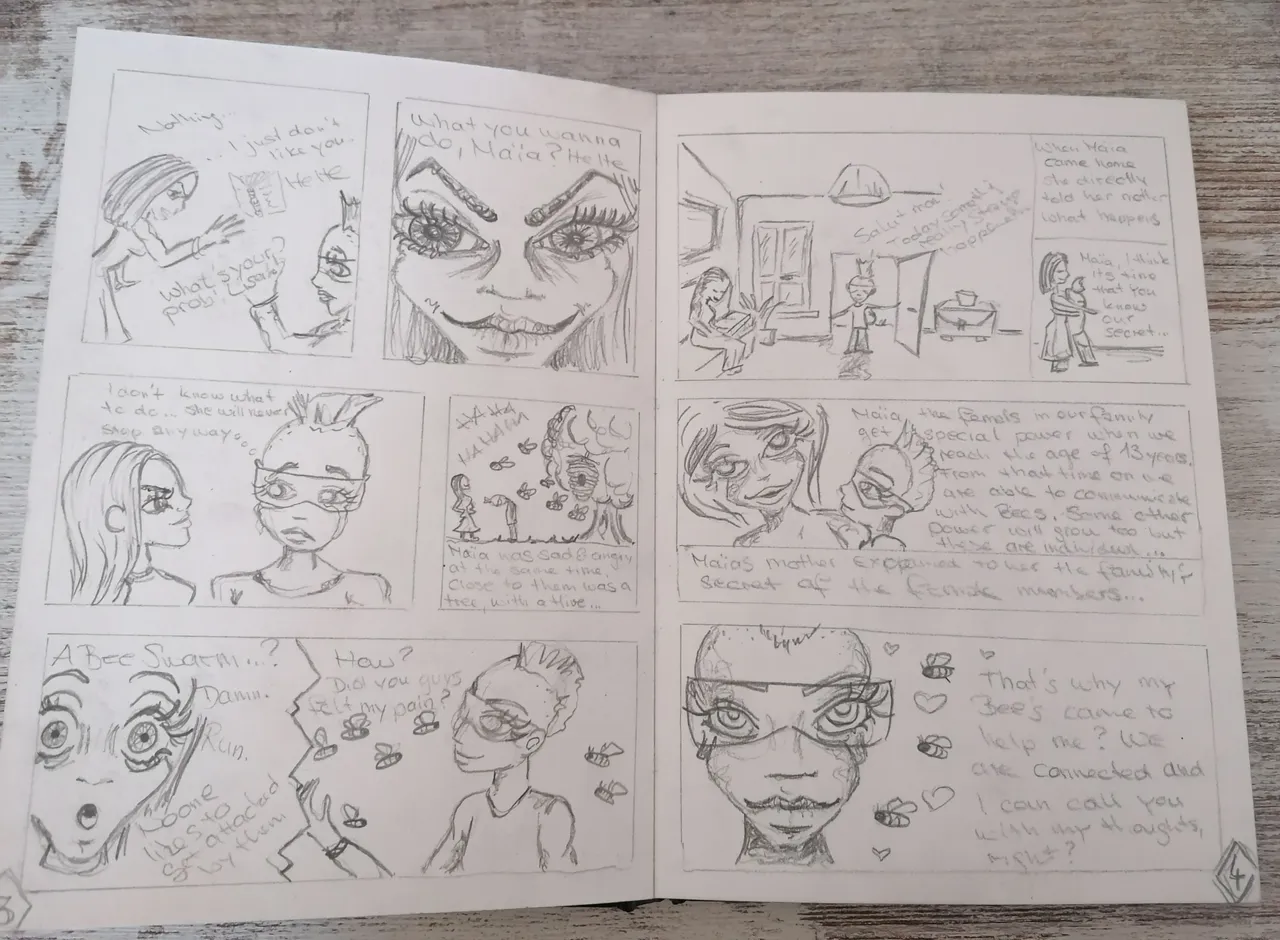 Nothing...
... I just don't
like you..
HeHe
What's your
probl
What you wanna
do, Maïa? HeHe
I don't know what
to do... she will never
stop anyway...
HAHAH
HAHAHA
Maïa was sad & angry
at the same time.
Close to them was a
tree, with a Hive...
A Bee Swarm...?
Damn.
Run.
Noone
likes to
get attacked
by them
How?
Did you guys
felt my pain?
3
Salut ma!
Today something
really strange
happened...
When Maïa
came home
she directly
told her mother
what happens
Maïa, I think
its time
that you
know
our
secret...
Maïa, the femals in our family
get special power when we
reach the age of 13 years.
From that time on we
are able to communicate
with Bees. Some other
power will grow too but
these are individual...
Maïas mother explained to her the family's
secret of the female members...
That's why my
Bees came to
help me? We
are connected and
I can call you
with my thoughts,
right?
4